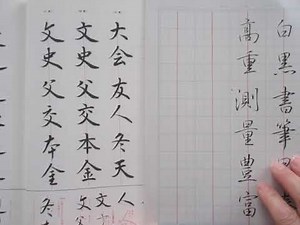 白黒書筆
高重測量豊富
大会友人冬天
文史父交本金
文史父交本金
人
文父
冬